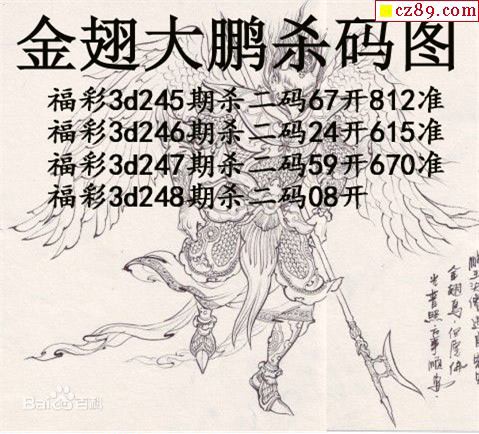 cz89.com
金翅大鹏杀码图
福彩3d245期杀二码67开812准
福彩3d246期杀二码24开615准
福彩3d247期杀二码59开670准
福彩3d248期杀二码08开
Bai百科